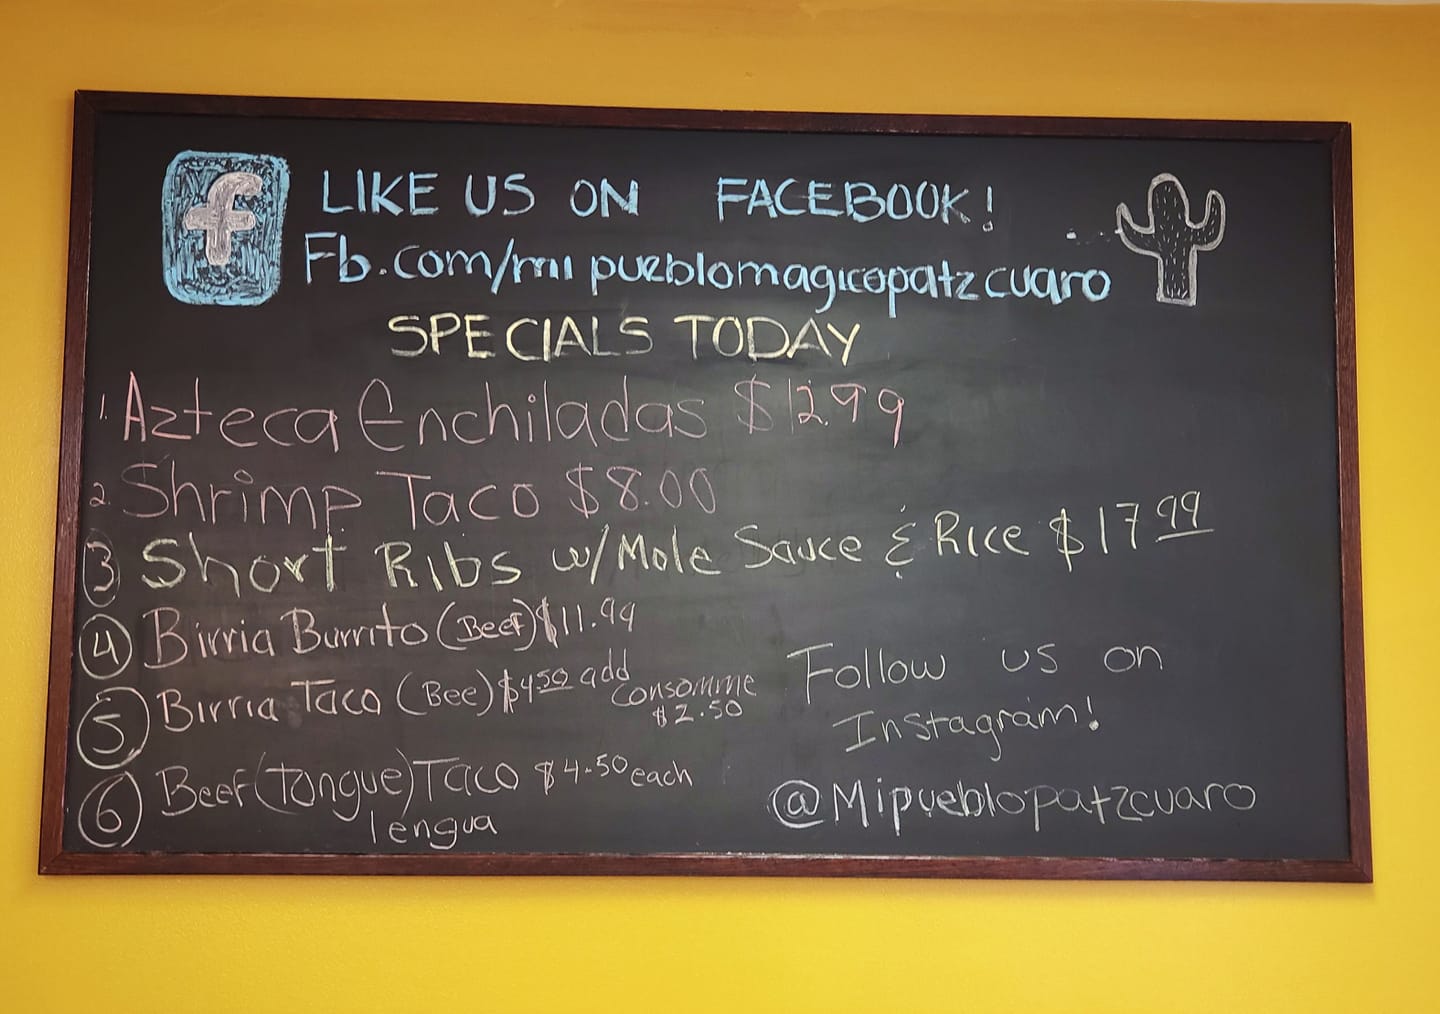 f LIKE US ON FACEBOOK!
Fb.com/mi pueblomagicopatzcuaro
SPECIALS TODAY
1. Azteca Enchiladas $12.99
2. Shrimp Taco $8.00
3 Short Ribs w/Mole Sauce & Rice $17 99
4 Birria Burrito (Beef) $11.99
5 Birria Taco (Bee) $4.50 add consomme $2.50
6 Beef (Tongue) Taco $4.50 each
lengua
Follow us on
Instagram!
@Mipueblopatzcuaro